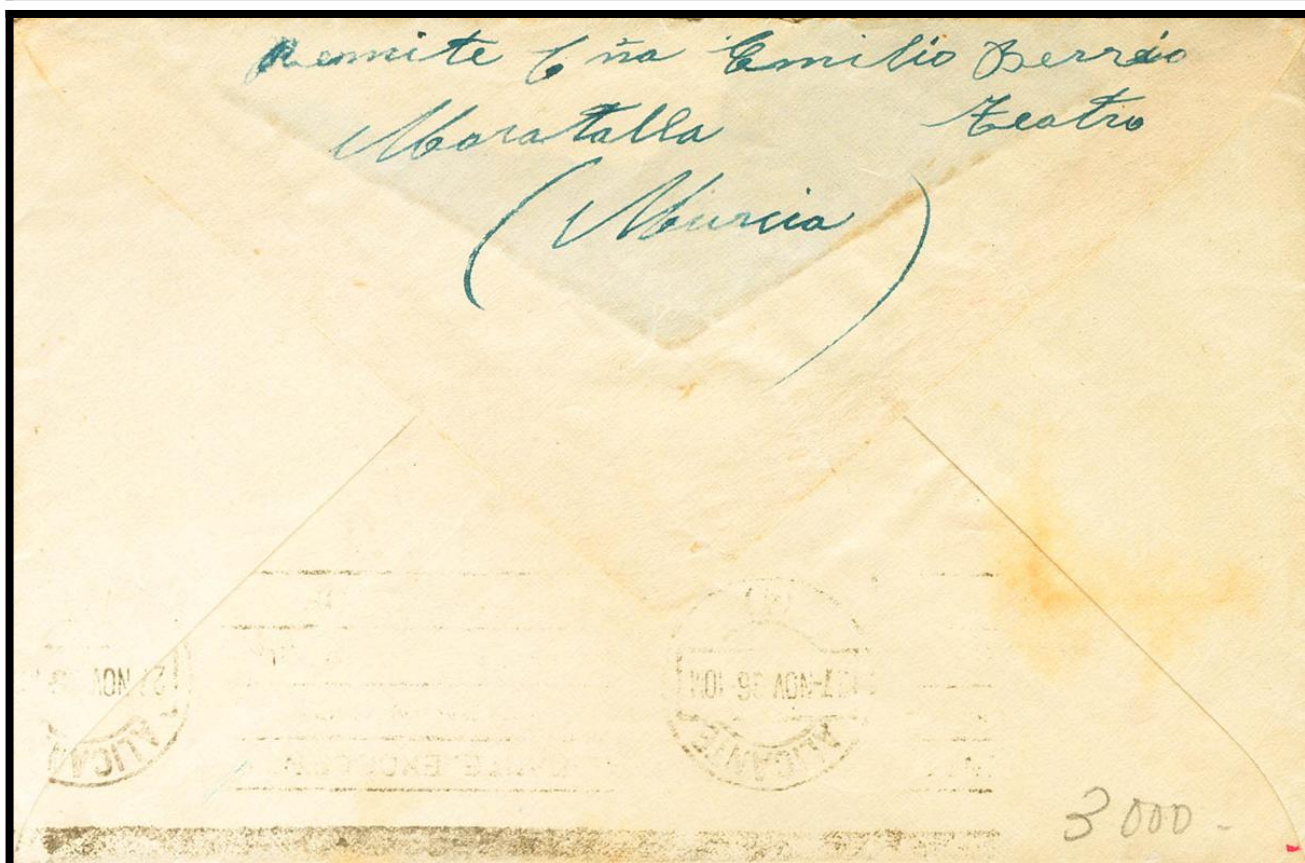 Remite Cña Emilio Berrio
Moratalla Teatro
(Murcia)
27-NOV 36-10M
ALICANTE
NOV
ALICAN
3000-